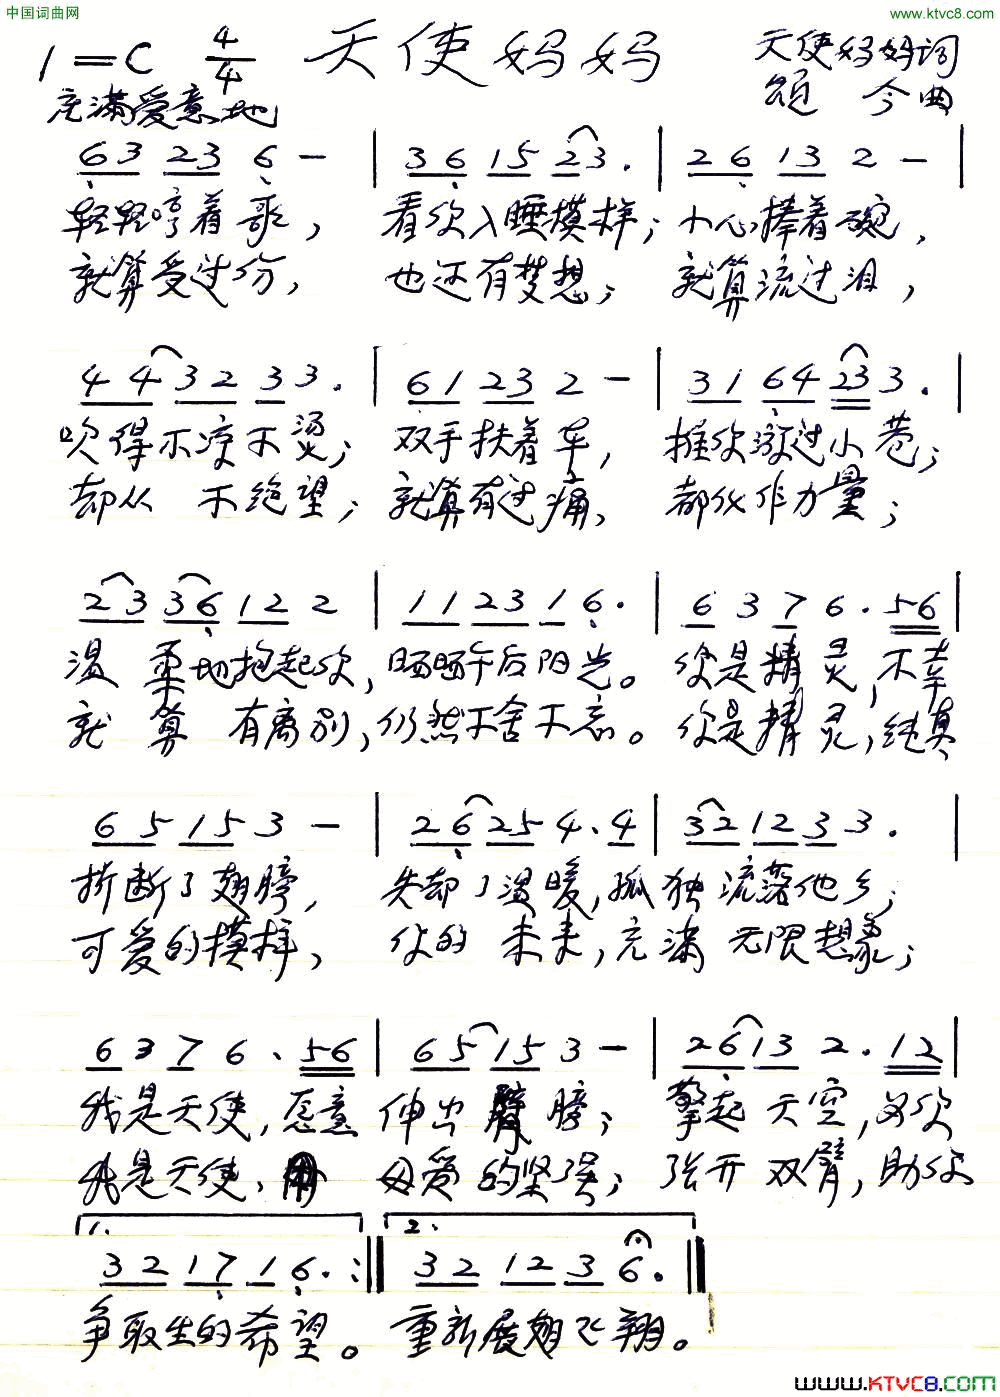 中国词曲网
www.ktvc8.com
1=C 4/4 天使妈妈 天使妈妈词
充满爱意地 颂 今曲
63 23 6 - | 36 15 23. | 26 13 2 - |
轻轻哼着歌, 看你入睡模样; 小心捧着碗,
就算受过伤, 也还有梦想; 就算流过泪,
44 32 33. | 61 23 2 - | 31 64 23 3. |
吹得不凉不烫; 双手扶着车, 推你激过小巷;
却从 不绝望; 就算有过痛, 都化作力量;
23 36 12 2 | 11 23 1 6. | 6 3 7 6. 56 |
温 柔地抱起你, 晒晒午后阳光。 你是精灵, 不幸
就 算 有离别, 仍然不舍不忘。 你是精灵, 纯真
65 15 3 - | 26 25 4. 4 | 32 12 3 3. |
折断了翅膀, 失却了温暖, 孤独流落他乡;
可爱的模样, 你的 未来, 充满 无限想象;
6 3 7 6. 56 | 65 15 3 - | 26 13 2. 12 |
我是天使, 愿意 伸出臂膀; 擎起 天空, 为你
我是天使, 用 母爱的坚强; 张开 双臂, 助你
1. 2.
32 17 1 6. :|| 32 12 3 6. ||
争取生的希望。 重新展翅飞翔。
www.KTVC8.com